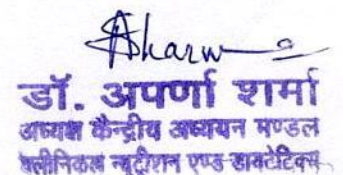 Asharma
डॉ. अपर्णा शर्मा
अध्यक्ष केन्द्रीय अध्ययन मण्डल
क्लीनिकल न्यूट्रीशन एण्ड डायटेटिक्स